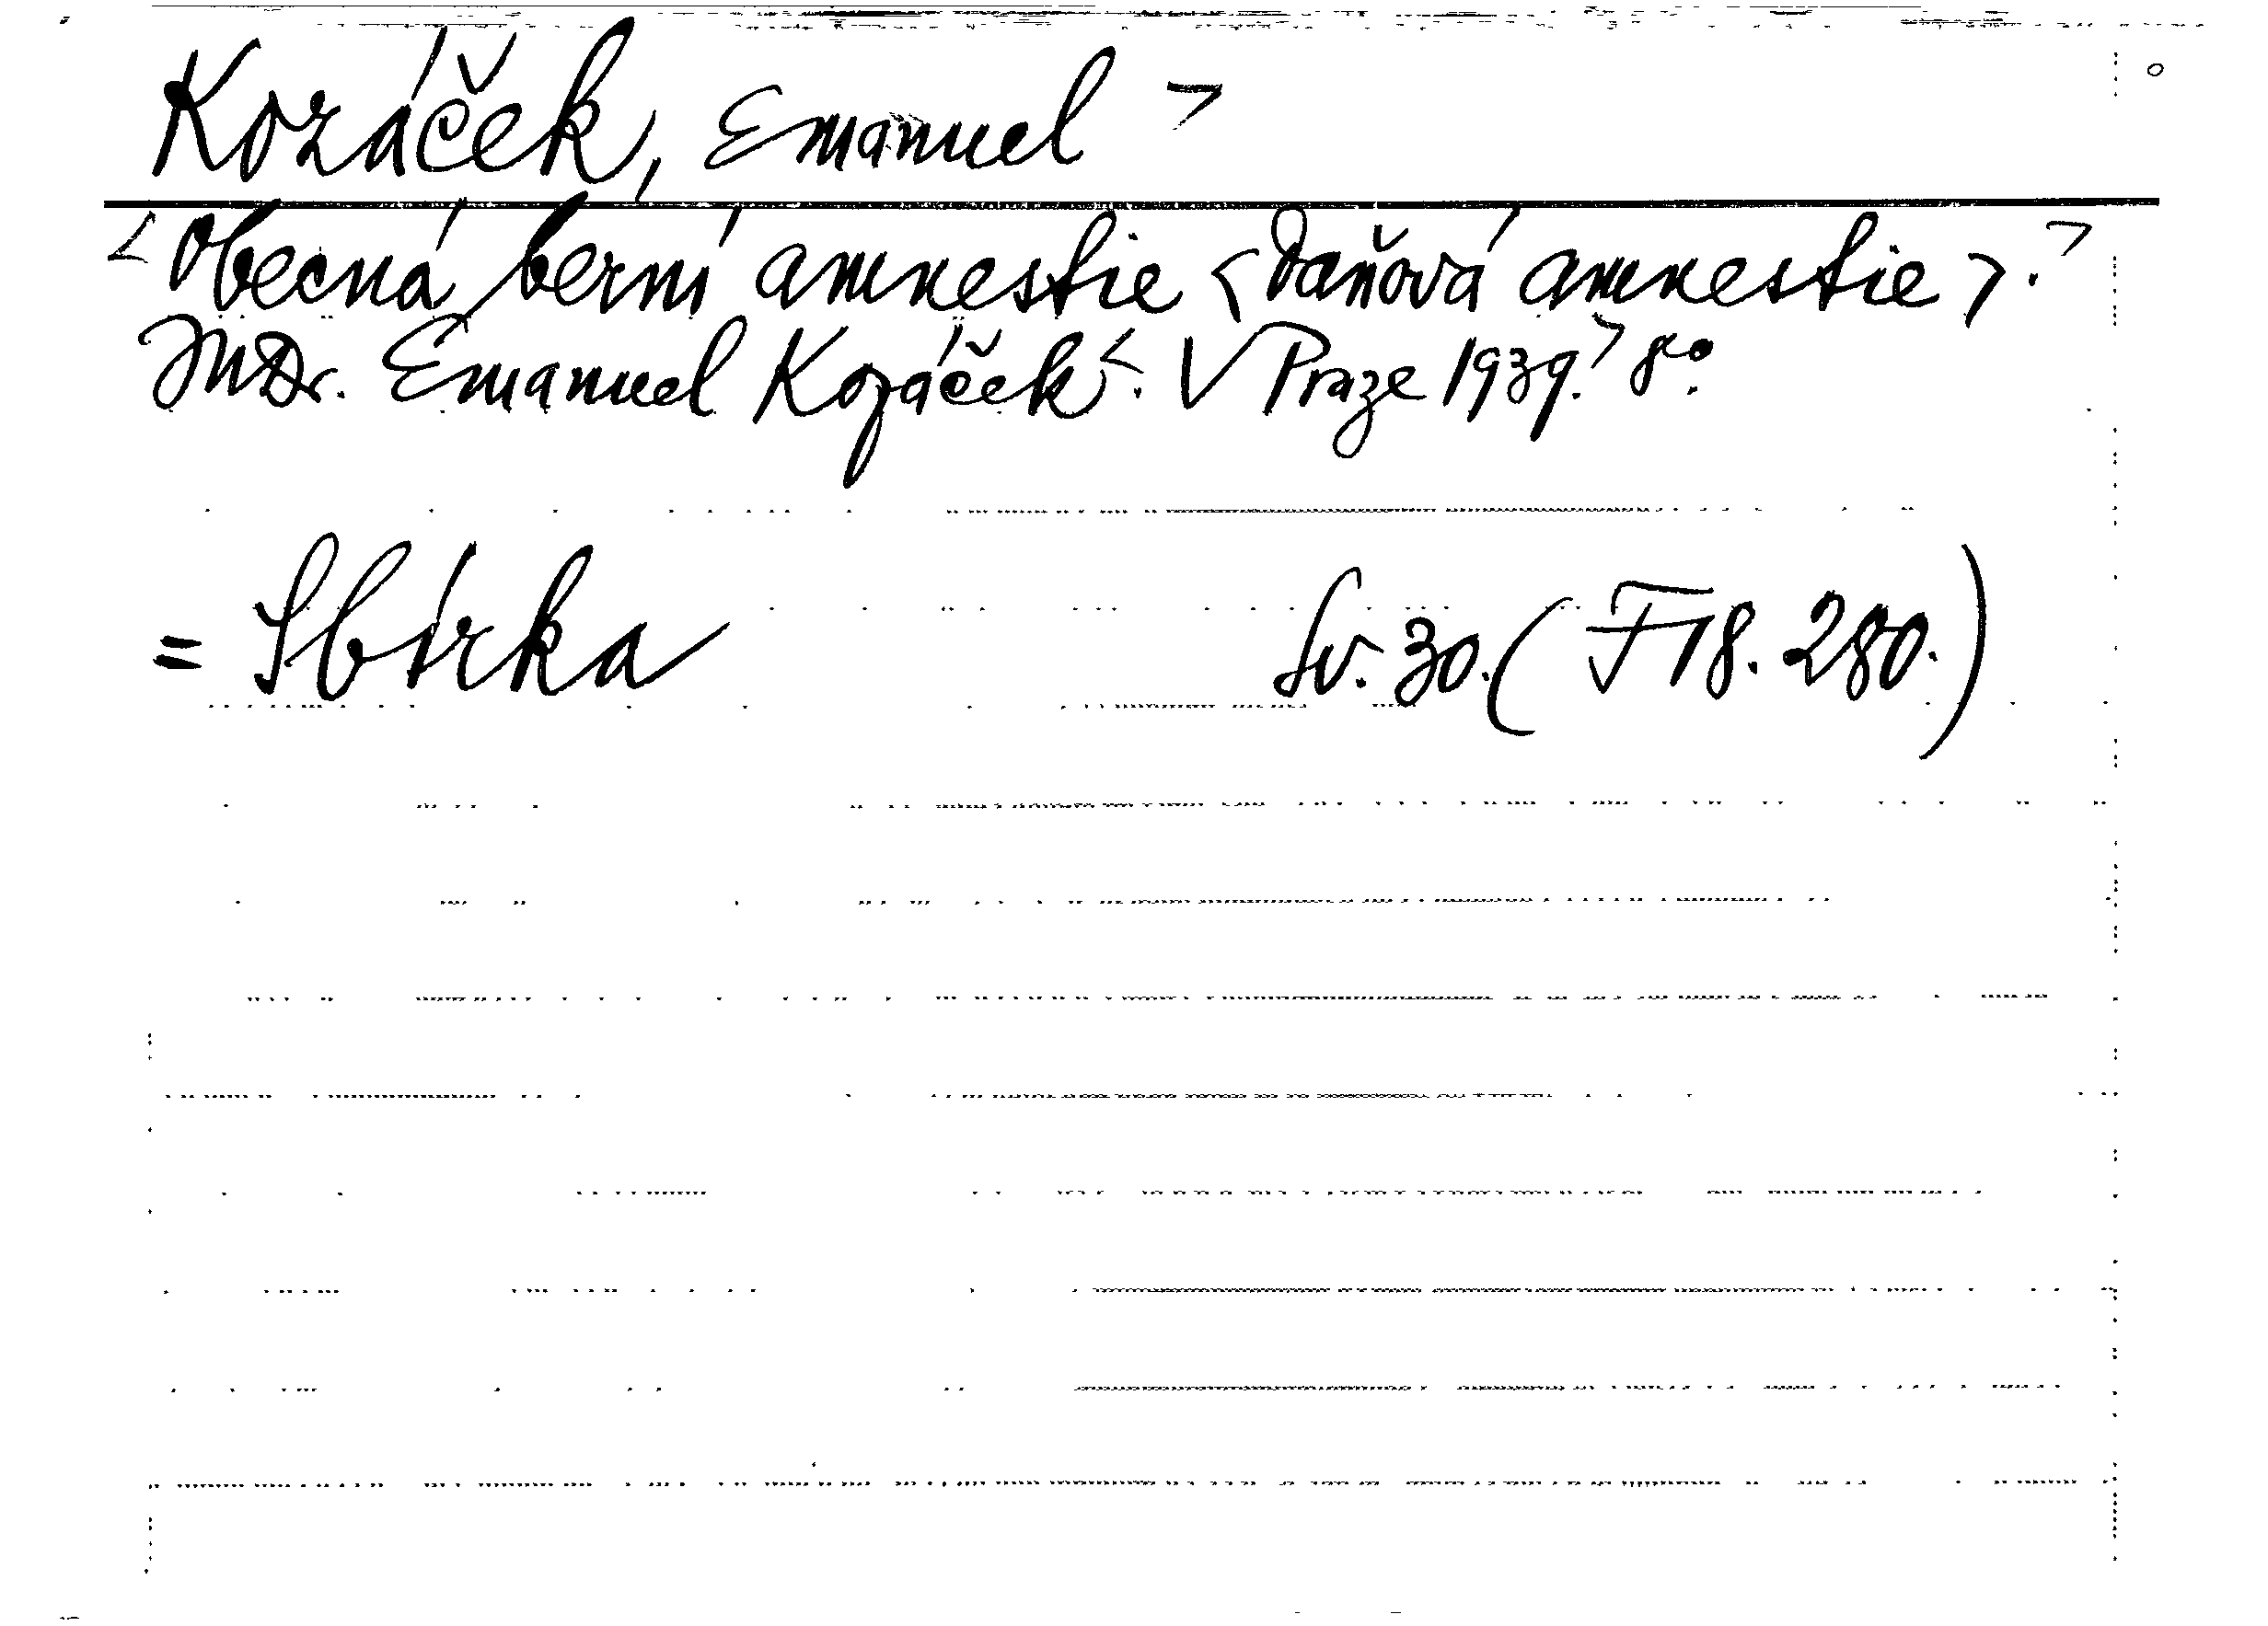 Kozáček, Emanuel >
< Obecná berní amnestie < daňová amnestie >. >
JUDr. Emanuel Kozáček <. V Praze 1939. > 8°.
= Sbírka Sv. 30. (F 18. 280.)